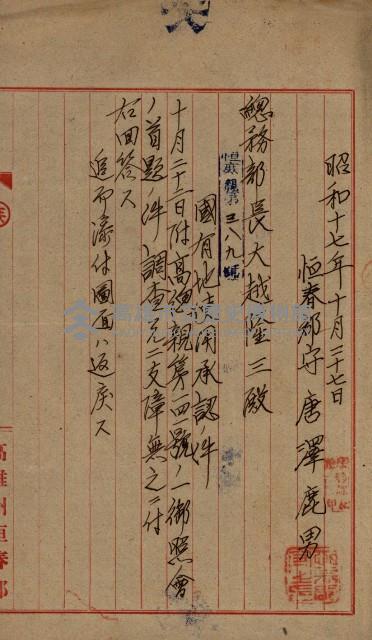 昭和十七年十月二十七日
恒春郡守 唐澤鹿男
總務部長大越座三殿
國有地使用承認ノ件
十月二十二日附高海親第一四一號ノ一御照會
ノ首題ノ件調査候処支障無之ニ付
右回答ス
追而添付圖面ハ返戻ス
高雄州恒春郡